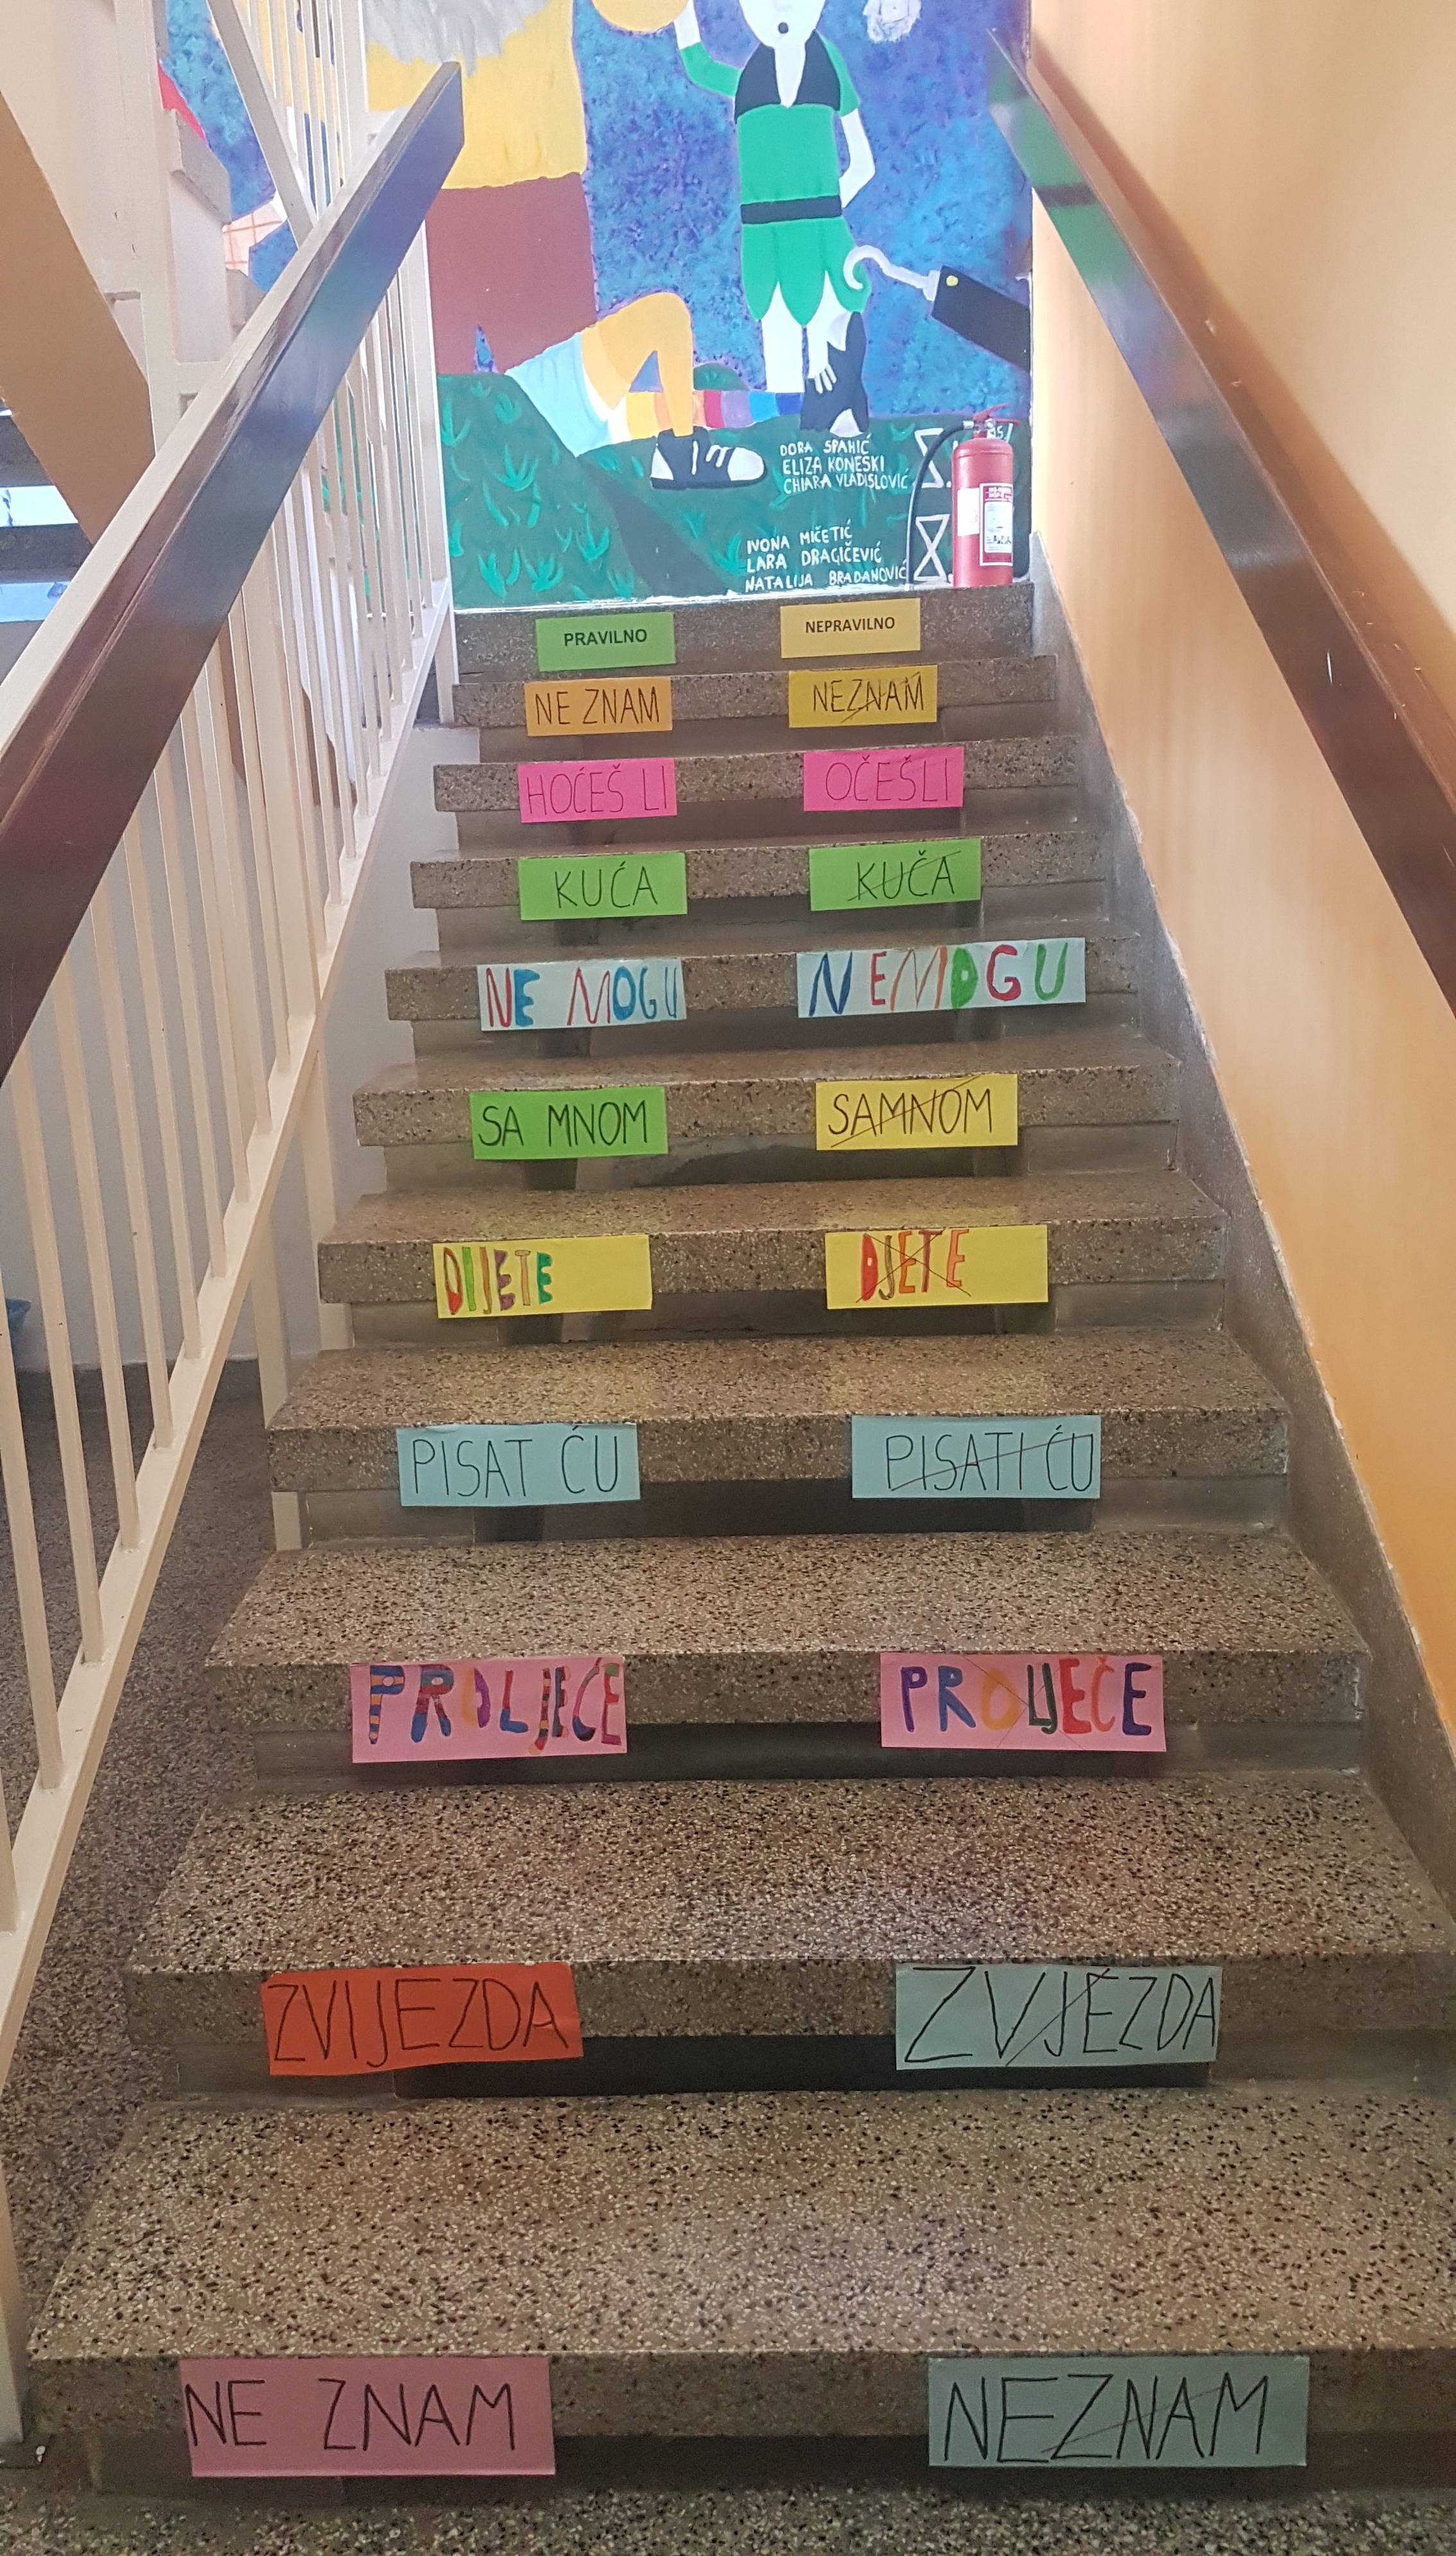 DORA SPAHIĆ
ELIZA KONESKI
CHIARA VLADISLOVIĆ
IVONA MIČETIĆ
LARA DRAGIČEVIĆ
NATALIJA BRADANOVIĆ
PRAVILNO NEPRAVILNO
NE ZNAM NEZNAM
HOĆEŠ LI OČEŠLI
KUĆA KUČA
NE MOGU NEMOGU
SA MNOM SAMNOM
DIJETE DJETE
PISAT ĆU PISATI ĆU
PROLJEĆE PROLJEČE
ZVIJEZDA ZVJEZDA
NE ZNAM NEZNAM